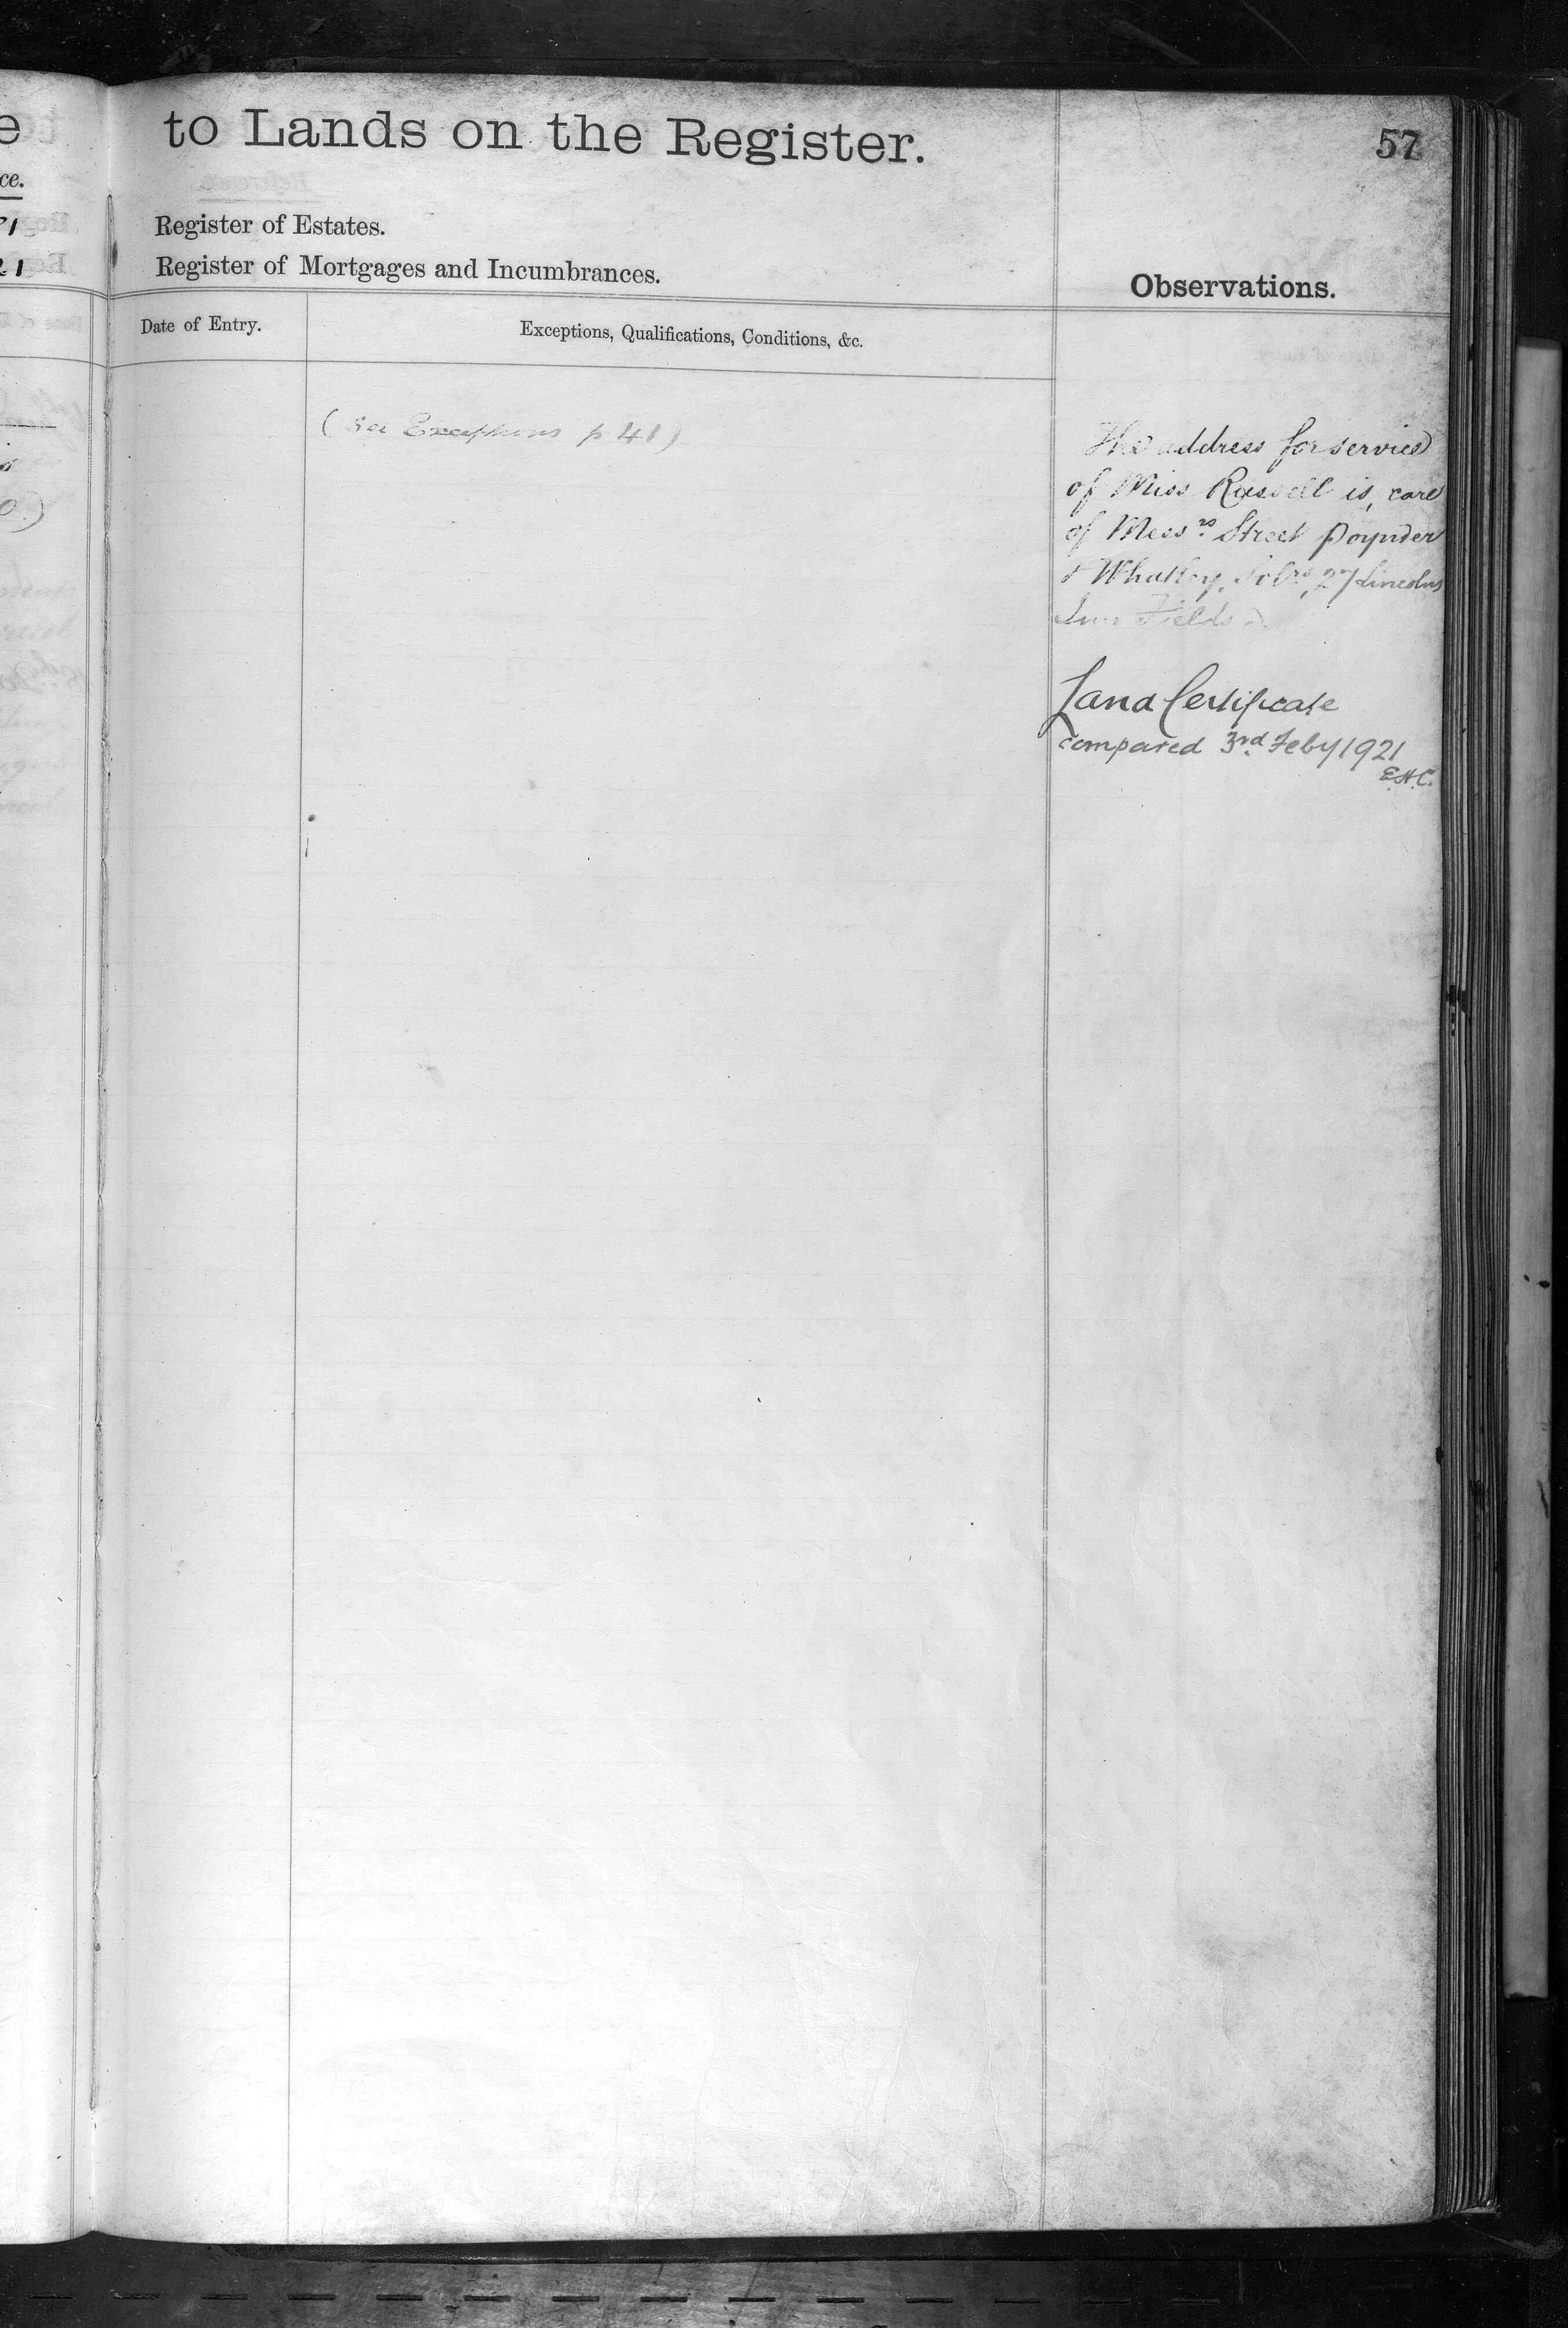 to Lands on the Register.
57
Register of Estates.
Register of Mortgages and Incumbrances.
Observations.
Date of Entry.
Exceptions, Qualifications, Conditions, &c.
(See Exceptions p 41)
The address for service
of Miss Russell is, care
of Mess.rs Street Poynder
& Whatley, Solrs, 27 Lincolns
Inn Fields
Land Certificate
compared 3rd Feby 1921
E.H.C.